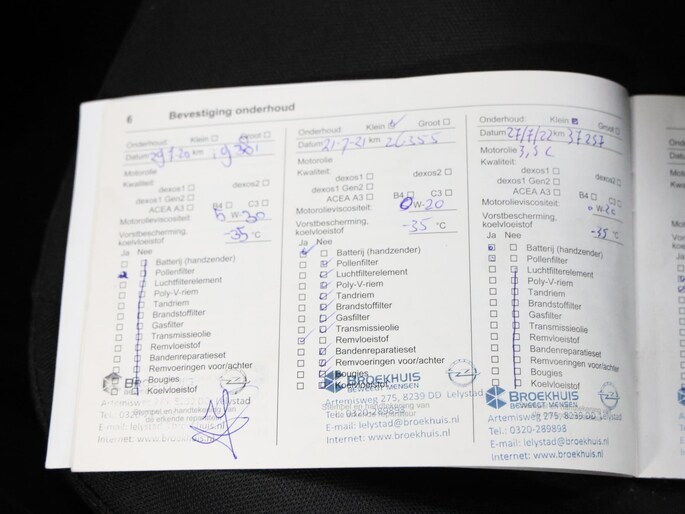 6 Bevestiging onderhoud
Onderhoud: Klein Groot
Datum 29-7-20 km
Motorolie
Kwaliteit:
dexos1 dexos2
dexos1 Gen2
ACEA A3 B4 C3
Motorolieviscositeit: 5 W-30
Vorstbescherming,
koelvloeistof -35 °C
Ja Nee
Batterij (handzender)
Pollenfilter
Luchtfilterelement
Poly-V-riem
Tandriem
Brandstoffilter
Gasfilter
Transmissieolie
Remvloeistof
Bandenreparatieset
Remvoeringen voor/achter
Bougies
Koelvloeistof
Stempel en handtekening van
Onderhoud: Klein Groot
Datum 21-7-21 km 26355
Motorolie
Kwaliteit:
dexos1 dexos2
dexos1 Gen2
ACEA A3 B4 C3
Motorolieviscositeit: 0 W-20
Vorstbescherming,
koelvloeistof -35 °C
Ja Nee
Batterij (handzender)
Pollenfilter
Luchtfilterelement
Poly-V-riem
Tandriem
Brandstoffilter
Gasfilter
Transmissieolie
Remvloeistof
Bandenreparatieset
Remvoeringen voor/achter
Bougies
BROEKHUIS
BEWEEGT MENSEN
Artemisweg 275, 8239 DD Lelystad
E-mail: lelystad@broekhuis.nl
Internet: www.broekhuis.nl
Onderhoud: Klein Groot
Datum 27/7/22 km 37257
Motorolie 3,5 L
Kwaliteit:
dexos1 dexos2
dexos1 Gen2
ACEA A3 B4 C3
Motorolieviscositeit: W-20
Vorstbescherming,
koelvloeistof -35 °C
Ja Nee
Batterij (handzender)
Pollenfilter
Luchtfilterelement
Poly-V-riem
Tandriem
Brandstoffilter
Gasfilter
Transmissieolie
Remvloeistof
Bandenreparatieset
Remvoeringen voor/achter
Bougies
Koelvloeistof
BROEKHUIS
BEWEEGT MENSEN
Artemisweg 275, 8239 DD Lelystad
Tel.: 0320-289898
E-mail: lelystad@broekhuis.nl
Internet: www.broekhuis.nl